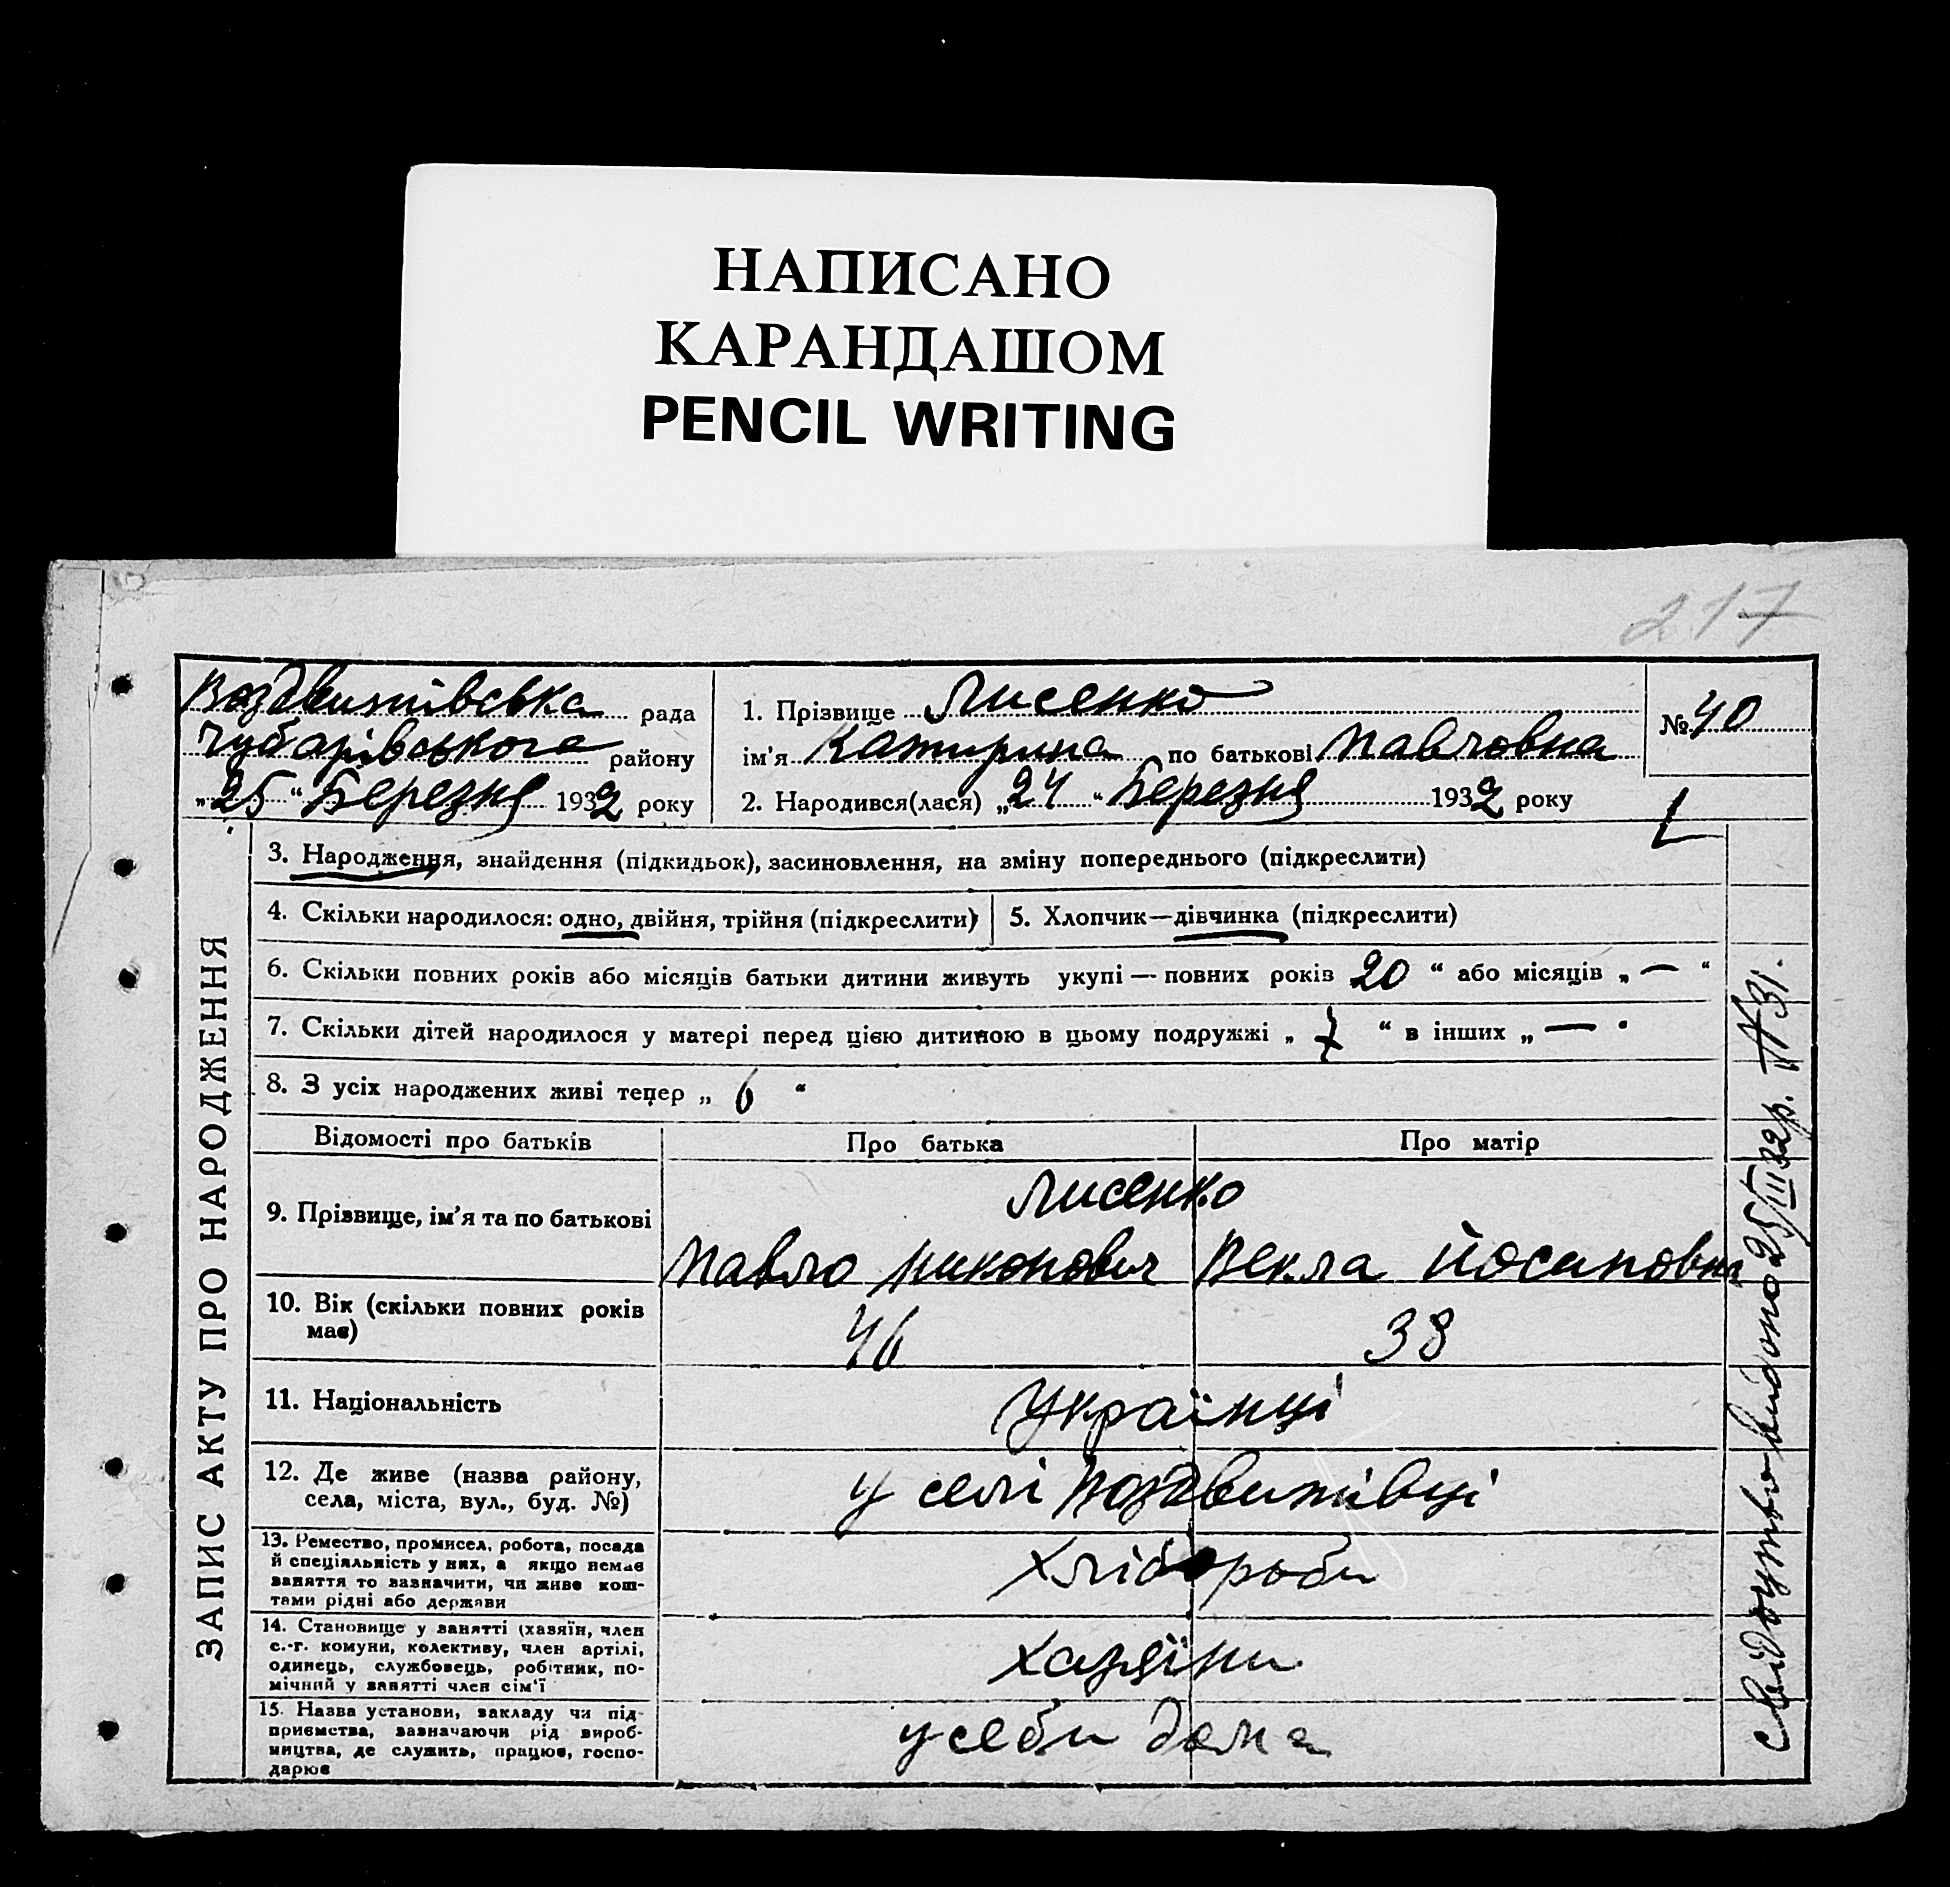 НАПИСАНО
КАРАНДАШОМ
PENCIL WRITING
217
Воздвижівська рада
Чубарівського району
„25“ Березня 1932 року
1. Прізвище Лисенко
ім'я Катирина по батькові Павловна
2. Народився(лася) „24“ Березня 1932 року
№ 40
ЗАПИС АКТУ ПРО НАРОДЖЕННЯ
3. Народження, знайдення (підкидьок), засиновлення, на зміну попереднього (підкреслити)
4. Скільки народилося: одно, двійня, трійня (підкреслити)
5. Хлопчик—дівчинка (підкреслити)
6. Скільки повних років або місяців батьки дитини живуть укупі — повних років 20 “ або місяців „ — “
7. Скільки дітей народилося у матері перед цією дитиною в цьому подружжі „ 7 “ в інших „ — “
8. З усіх народжених живі тепер „ 6 “
Відомості про батьків
Про батька
Про матір
9. Прізвище, ім'я та по батькові
Лисенко
Павло Никонович
Векла Йосиповна
10. Вік (скільки повних років
має)
46
38
11. Національність
Українці
12. Де живе (назва району,
села, міста, вул., буд. №)
у селі Воздвижівці
13. Ремество, промисел, робота, посада
й спеціяльність у них, а якщо немає
заняття то зазначити, чи живе кош-
тами рідні або держави
Хлібороби
14. Становище у занятті (хазяїн, член
с.-г. комуни, колективу, член артілі,
одинець, службовець, робітник, по-
мічний у занятті член сім'ї
Хазяїни
15. Назва установи, закладу чи під-
приємства, зазначаючи рід вироб-
ництва, де служить, працює, госпо-
дарює
у себи дома
Свідоцтво видано 25/III 32 р. № 31.